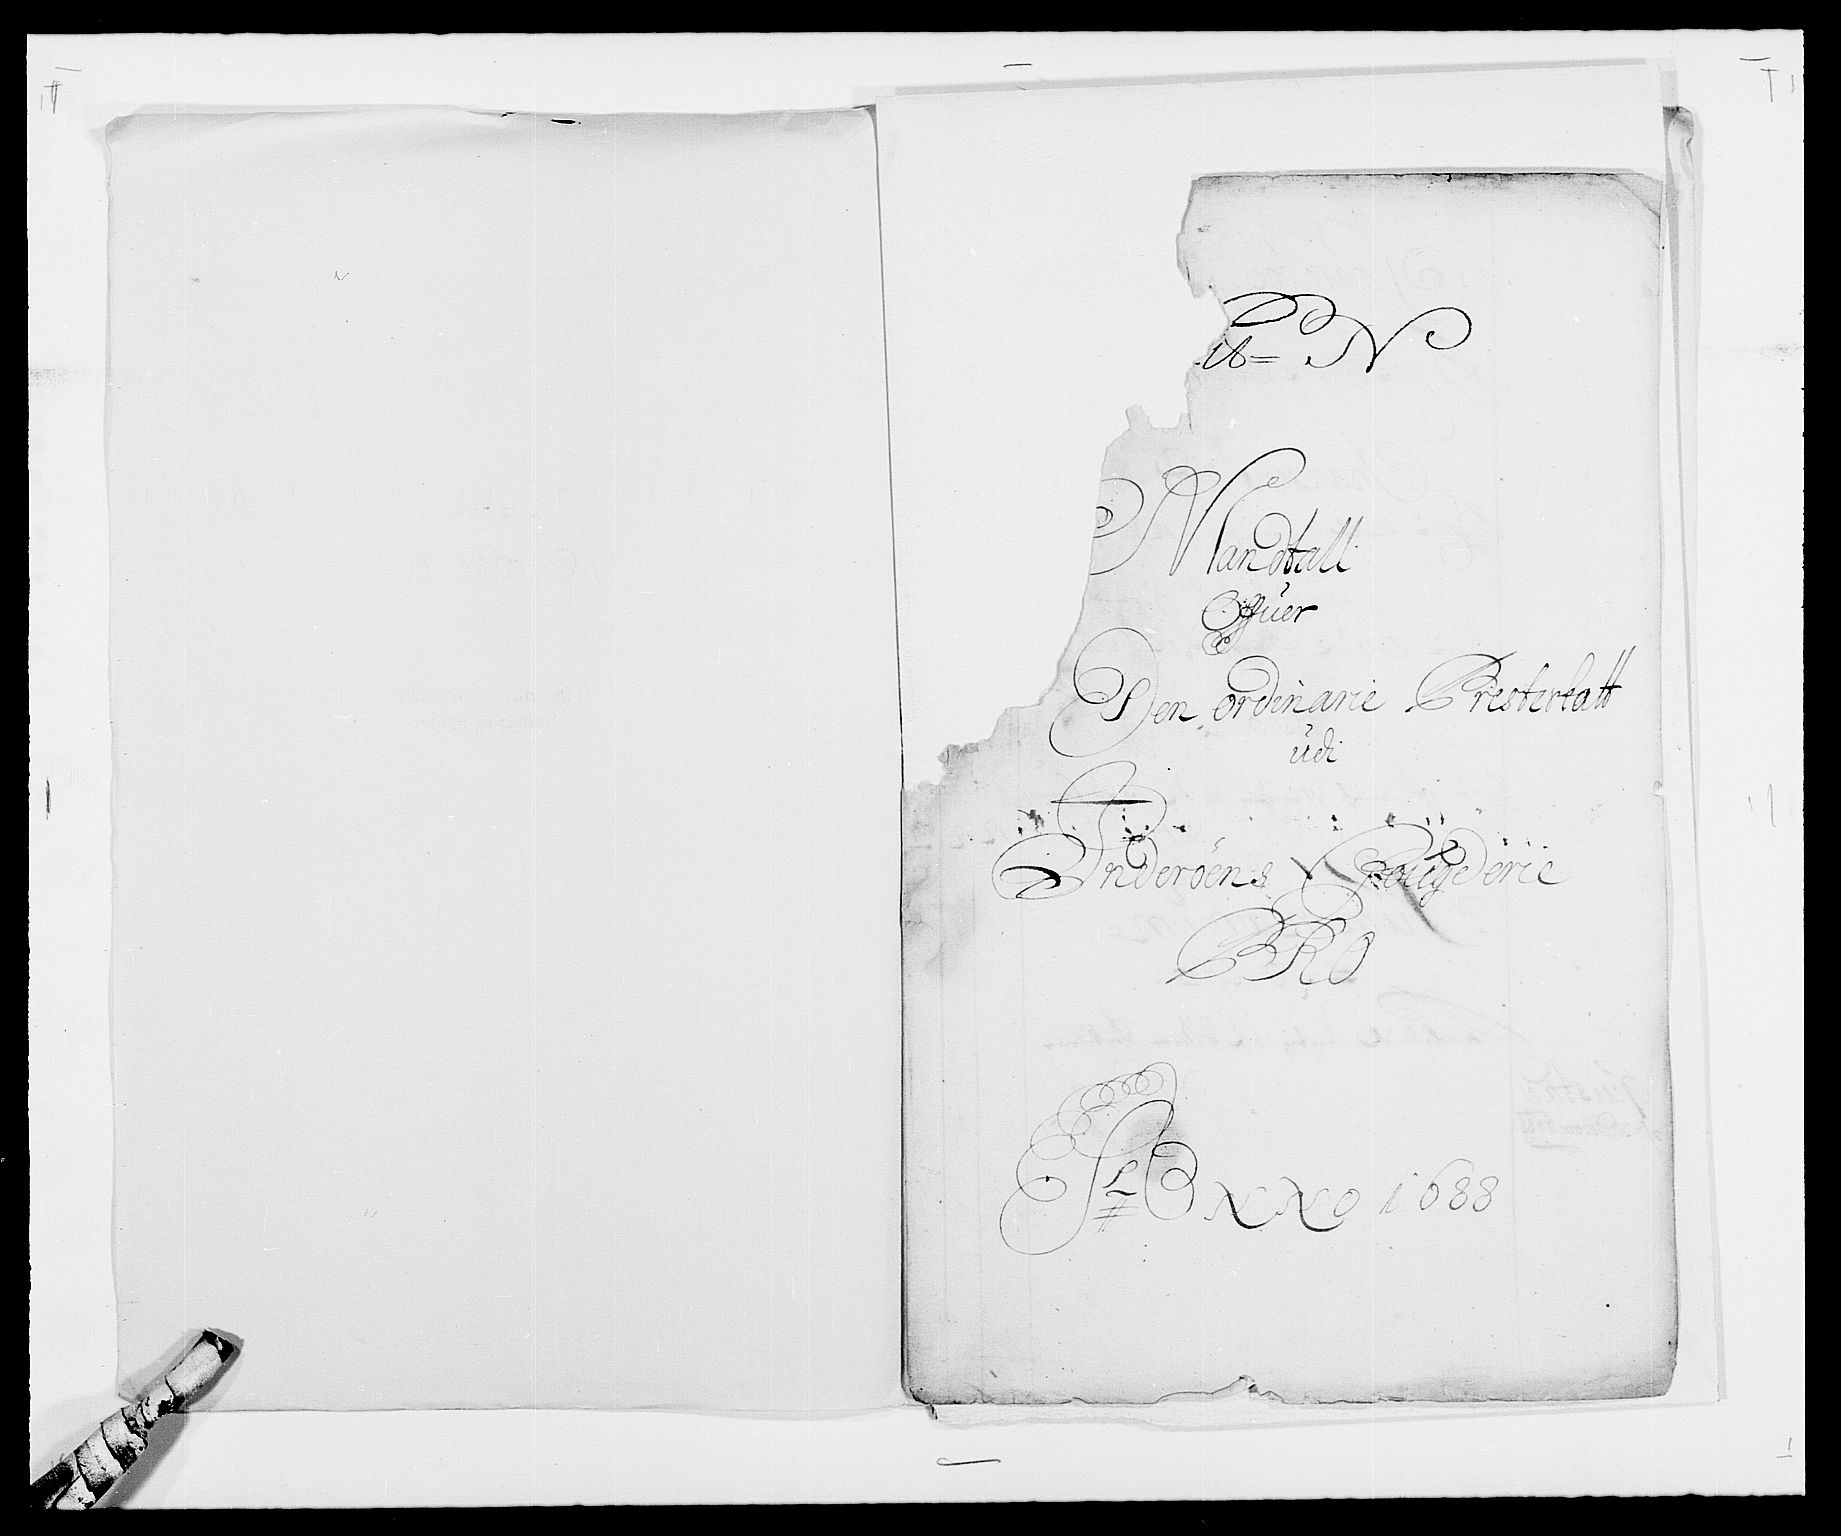 16= N
Mandtall
Offuer
Den ordinarie Presteskatt
udi
Inderöens Fougderie
PRO
ANNO 1688